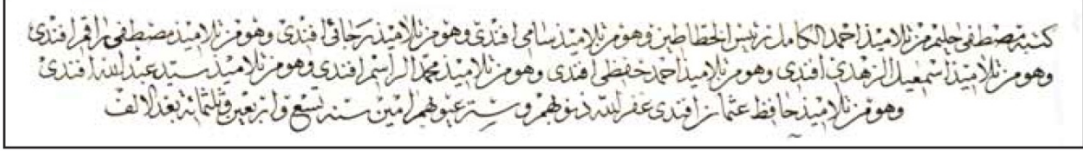 كتبه مصطفى حليم من تلاميذ احمد الكامل رئيس الخطاطين وهو من تلاميذ سامى افندى وهو من تلاميذ رجائى افندى وهو من تلاميذ مصطفى راقم افندى
وهو من تلاميذ اسمعيل الزهدى افندى وهو من تلاميذ احمد حفظى افندى وهو من تلاميذ محمد الراسم افندى وهو من تلاميذ سيد عبد الله افندى
وهو من تلاميذ حافظ عثمان افندى غفر الله ذنوبهم وستر عيوبهم امين سنة تسع واربعين وثلثمائة بعد الالف